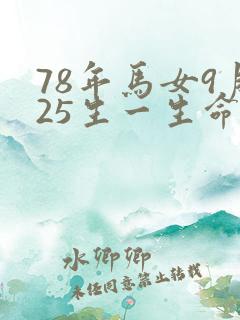 78年馬女9月
25生一生命
水卿卿
未經同意禁止转载